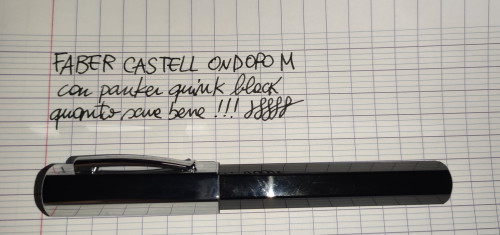 FABER CASTELL ONDOPO M
con parker quink black
quanto scrive bene !!!